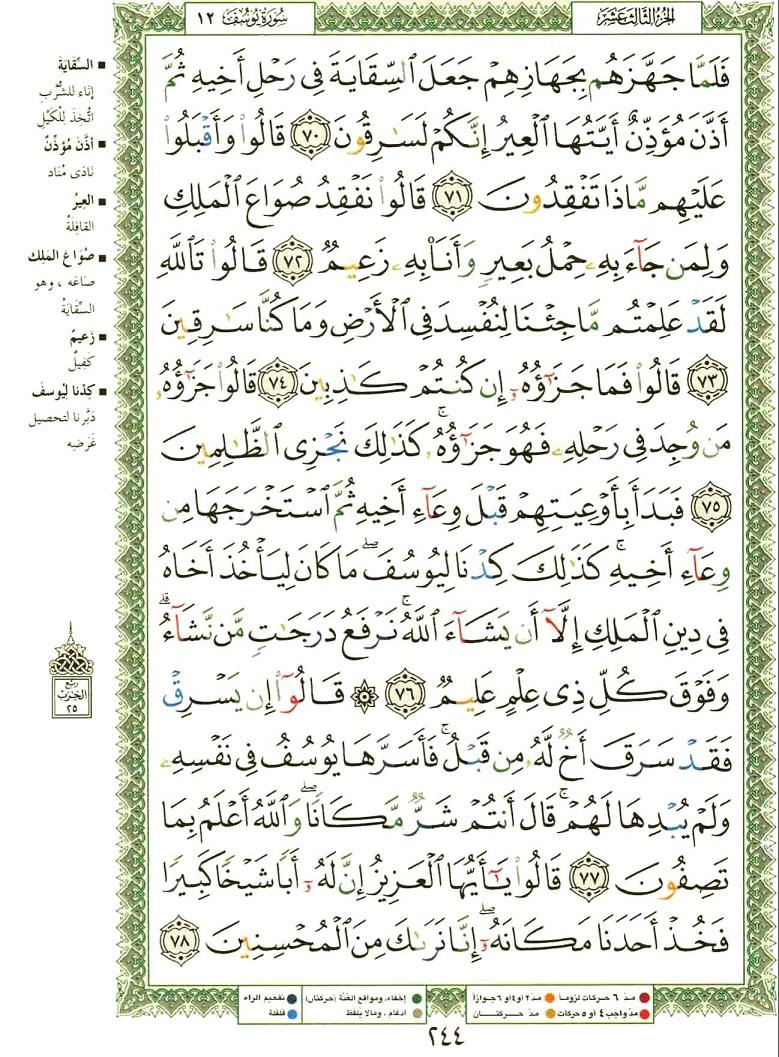 الجزء الثالث عشر
سورة يوسف ١٢
فَلَمَّا جَهَّزَهُم بِجَهَازِهِمْ جَعَلَ ٱلسِّقَايَةَ فِى رَحْلِ أَخِيهِ ثُمَّ
أَذَّنَ مُؤَذِّنٌ أَيَّتُهَا ٱلْعِيرُ إِنَّكُمْ لَسَٰرِقُونَ ٧٠ قَالُوا۟ وَأَقْبَلُوا۟
عَلَيْهِم مَّاذَا تَفْقِدُونَ ٧١ قَالُوا۟ نَفْقِدُ صُوَاعَ ٱلْمَلِكِ
وَلِمَن جَآءَ بِهِۦ حِمْلُ بَعِيرٍ وَأَنَا۠ بِهِۦ زَعِيمٌ ٧٢ قَالُوا۟ تَٱللَّهِ
لَقَدْ عَلِمْتُم مَّا جِئْنَا لِنُفْسِدَ فِى ٱلْأَرْضِ وَمَا كُنَّا سَٰرِقِينَ
٧٣ قَالُوا۟ فَمَا جَزَٰٓؤُهُۥٓ إِن كُنتُمْ كَٰذِبِينَ ٧٤ قَالُوا۟ جَزَٰٓؤُهُۥ
مَن وُجِدَ فِى رَحْلِهِۦ فَهُوَ جَزَٰٓؤُهُۥ ۚ كَذَٰلِكَ نَجْزِى ٱلظَّٰلِمِينَ
٧٥ فَبَدَأَ بِأَوْعِيَتِهِمْ قَبْلَ وِعَآءِ أَخِيهِ ثُمَّ ٱسْتَخْرَجَهَا مِن
وِعَآءِ أَخِيهِ ۚ كَذَٰلِكَ كِدْنَا لِيُوسُفَ ۖ مَا كَانَ لِيَأْخُذَ أَخَاهُ
فِى دِينِ ٱلْمَلِكِ إِلَّآ أَن يَشَآءَ ٱللَّهُ ۚ نَرْفَعُ دَرَجَٰتٍ مَّن نَّشَآءُ ۗ
وَفَوْقَ كُلِّ ذِى عِلْمٍ عَلِيمٌ ٧٦ ۞ قَالُوٓا۟ إِن يَسْرِقْ
فَقَدْ سَرَقَ أَخٌ لَّهُۥ مِن قَبْلُ ۚ فَأَسَرَّهَا يُوسُفُ فِى نَفْسِهِۦ
وَلَمْ يُبْدِهَا لَهُمْ ۚ قَالَ أَنتُمْ شَرٌّ مَّكَانًا ۖ وَٱللَّهُ أَعْلَمُ بِمَا
تَصِفُونَ ٧٧ قَالُوا۟ يَٰٓأَيُّهَا ٱلْعَزِيزُ إِنَّ لَهُۥٓ أَبًا شَيْخًا كَبِيرًا
فَخُذْ أَحَدَنَا مَكَانَهُۥٓ ۖ إِنَّا نَرَىٰكَ مِنَ ٱلْمُحْسِنِينَ ٧٨
■ السِّقَايَة
إناء للشُّربِ
اتُّخذَ لِلْكَيْلِ
■ أذَّنَ مُؤذِّنٌ
نَادَى مُنَاد
■ العِيرُ
القافِلَةُ
■ صُوَاعَ المَلِك
صَاعَه ، وهو
السِّقَايَةُ
■ زَعِيمٌ
كَفِيلٌ
■ كِدْنا لِيُوسفَ
دَبَّرنا لتحصيل
غَرَضِه
ربع
الحزب
٢٥
مدّ ٦ حركات لزوما
مدّ ٢ أو ٤ أو ٦ جوازاً
إخفاء، ومواقع الغُنَّة (حركتان)
تفخيم الراء
مدّ واجب ٤ أو ٥ حركات
مدّ حركتان
ادغام ، وما لا يُلفظ
قلقلة
٢٤٤